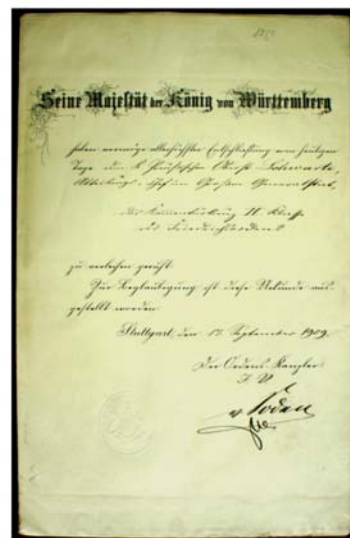 Seine Majestät der König von Württemberg
haben vermöge allerhöchster Entschließung vom heutigen
Tage dem K. Preußischen Oberst
Abteilungschef im Großen Generalstab,
das Komenturkreuz II. Klasse
des Friedrichsordens
zu verleihen geruht.
Zur Beglaubigung ist diese Urkunde aus-
gestellt worden.
Stuttgart, den September 1909.
Der Ordens-Kanzler
I. V.
v. Soden